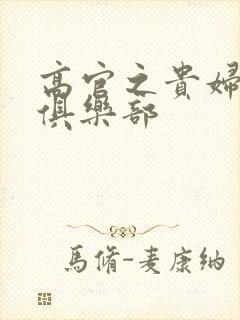 高官之貴婦
俱樂部
馬脩-麦康納